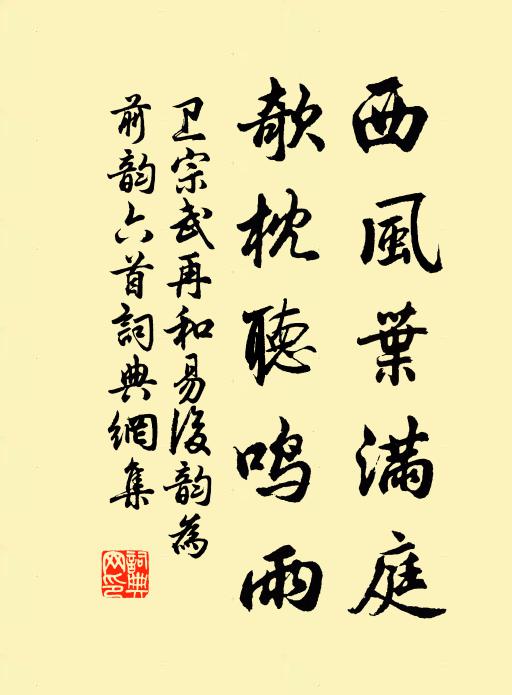 西風葉滿庭
欹枕聽鳴雨
卫宗武再和易後韵為
前韵六首詞典網集
詞典
网印